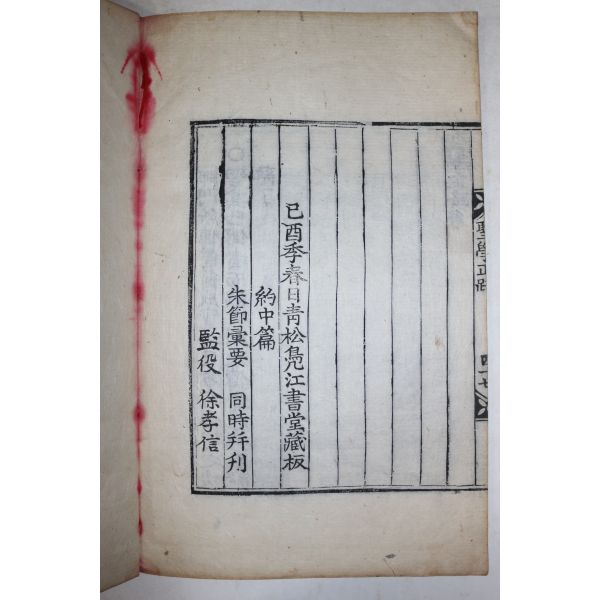 聖學正路
己酉季春日靑松鳧江書堂藏板
約中篇
朱節彙要 同時幷刊
監役 徐孝信